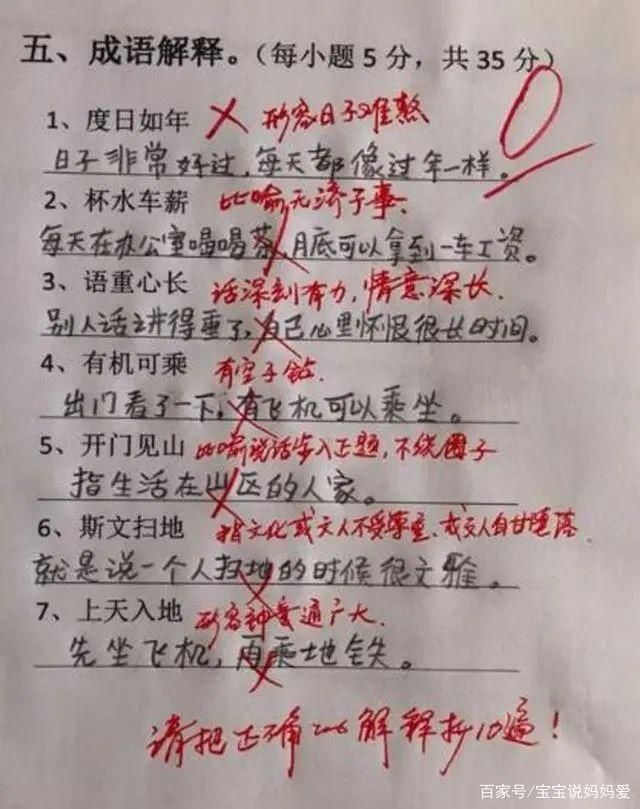 五、成语解释。（每小题5分，共35分）
0
1、度日如年 形容日子难熬
日子非常好过，每天都像过年一样。
2、杯水车薪 比喻无济于事、
每天在办公室喝喝茶，月底可以拿到一车工资。
3、语重心长 话深刻有力，情意深长．
别人话讲得重了，自己心里怀恨很长时间。
4、有机可乘 有空子钻．
出门看了一下，有飞机可以乘坐。
5、开门见山 比喻说话步入正题，不绕圈子
指生活在山区的人家。
6、斯文扫地 指文化或文人不受尊重、或文人自甘堕落
就是说一个人扫地的时候很文雅。
7、上天入地 形容神通广大．
先坐飞机，再乘地铁。
请把正确的解释抄10遍！
百家号/宝宝说妈妈爱